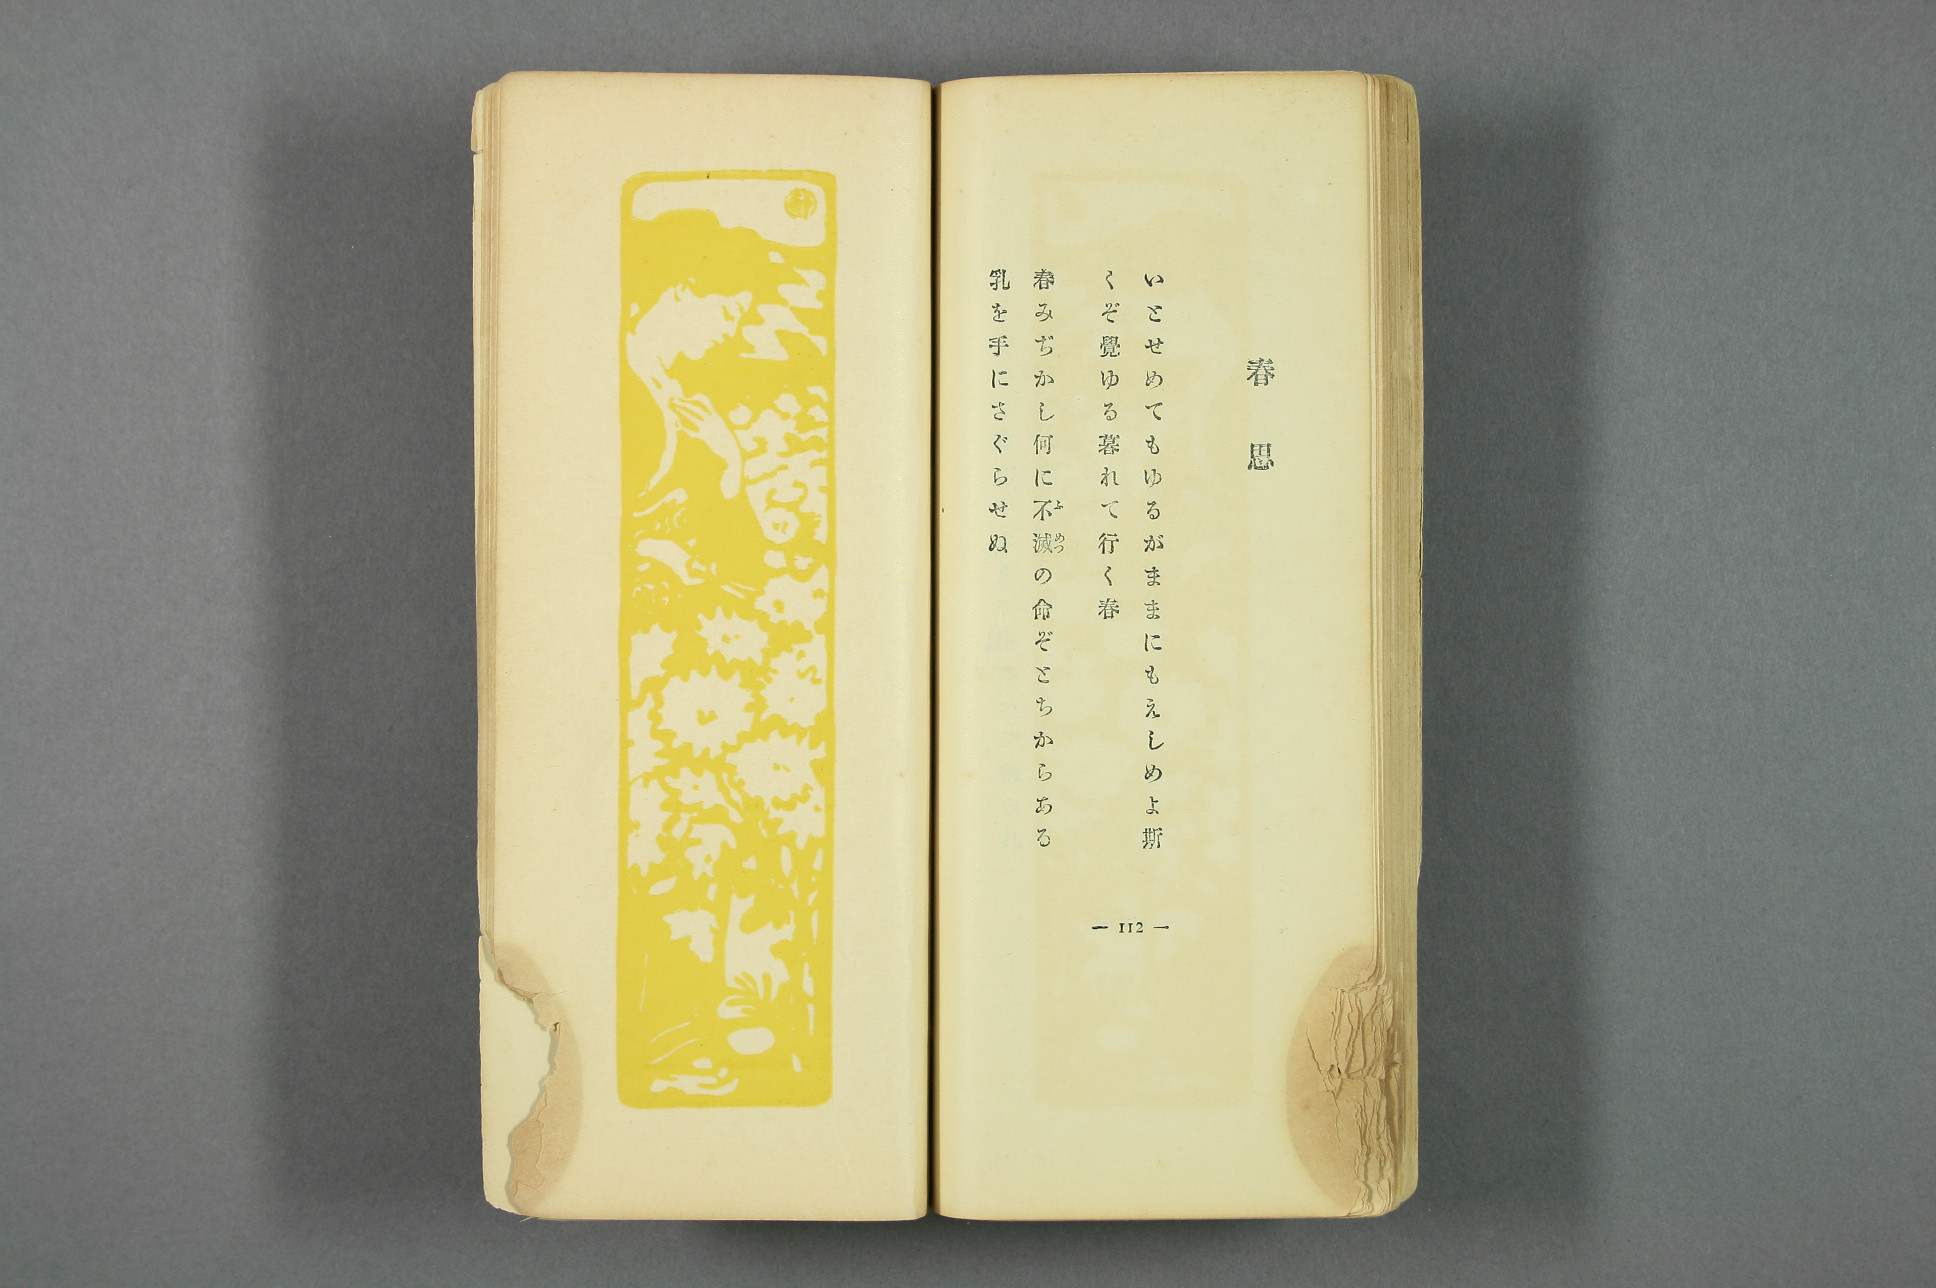 春思
いとせめてもゆるがままにもえしめよ斯
くぞ覺ゆる暮れて行く春
春みぢかし何に不滅の命ぞとちからある
ふめつ
乳を手にさぐらせぬ
— 112 —